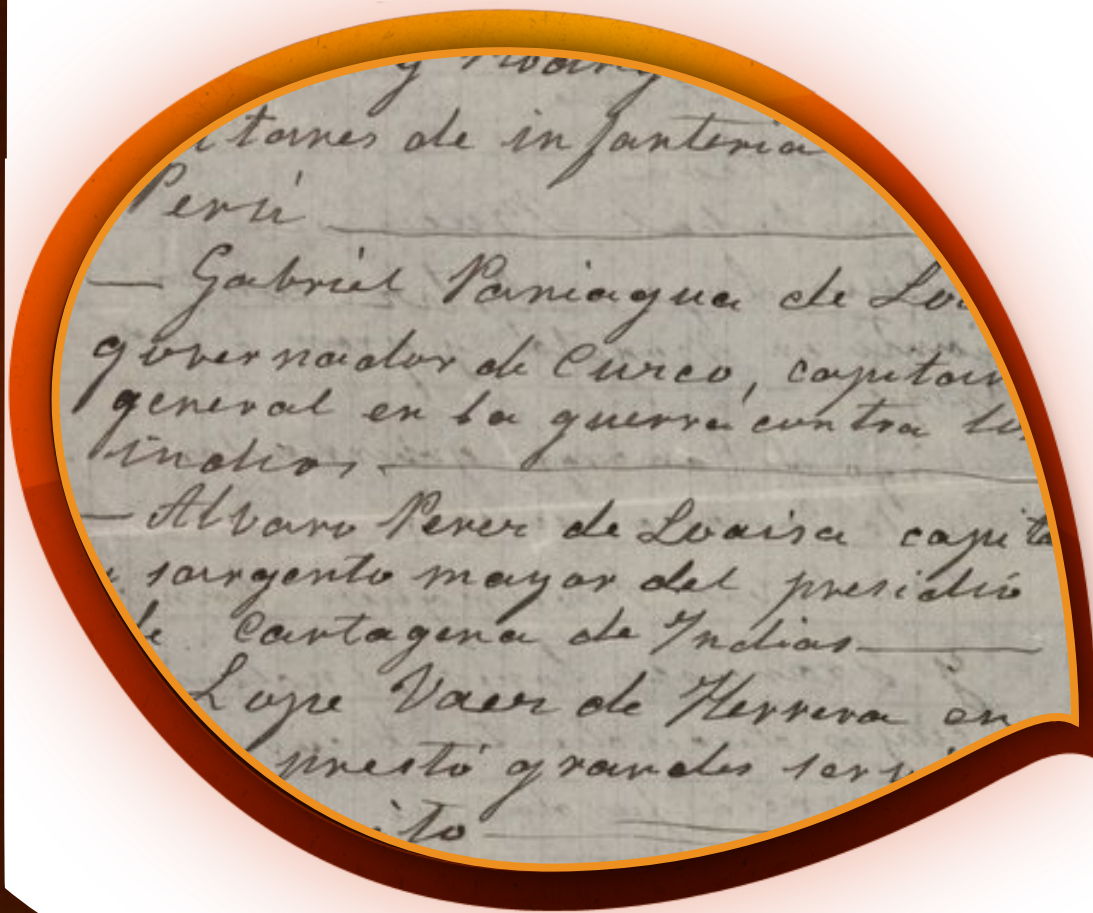 de infanteria
Perú
— Gabriel Paniagua de
governador de Cuzco, capitan
general en la guerra contra
indios
— Alvaro Perez de Loaisa
sargento mayor del presidio
Cartagena de Indias
Lope Vaez de Herrera en
prestó grandes